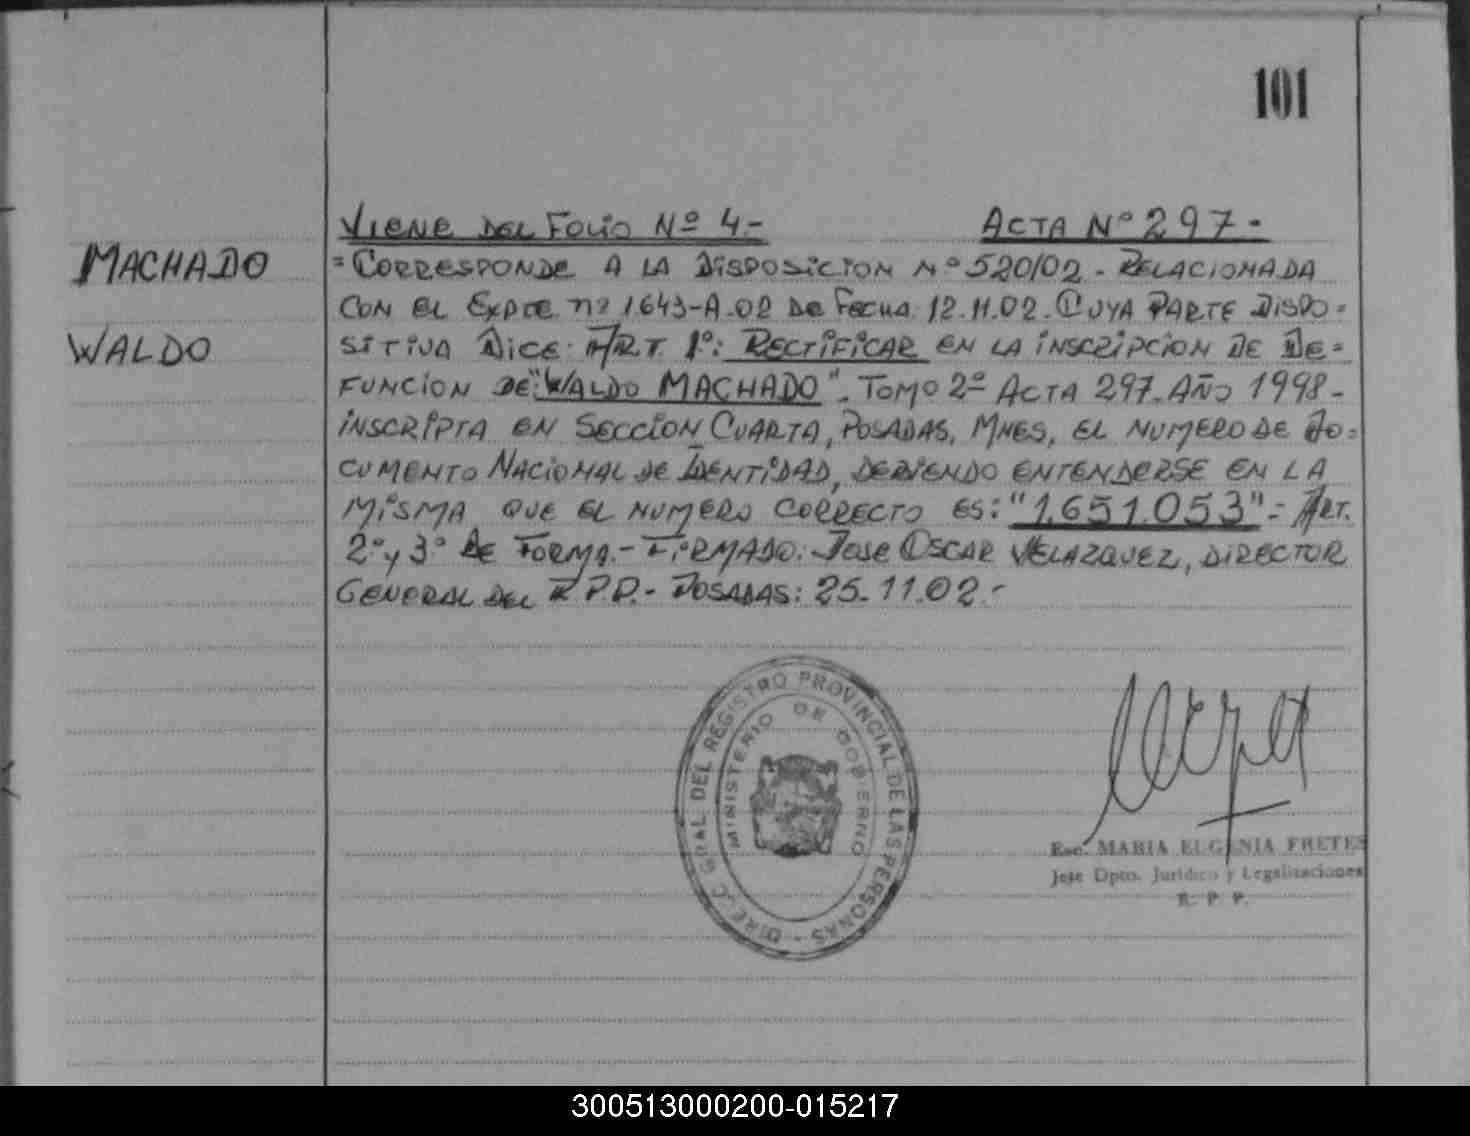 101
VIENE DEL FOLIO Nº 4.- ACTA Nº 297-
MACHADO
WALDO
=CORRESPONDE A LA DISPOSICION Nº 520/02 - RELACIONADA
CON EL EXPTE nº 1.643-A-02 DE FECHA 12.11.02. CUYA PARTE DISPO=
SITIVA DICE: ART. 1º: RECTIFICAR EN LA INSCRIPCION DE DE=
FUNCION DE "WALDO MACHADO". TOMO 2º ACTA 297. AÑO 1998-
INSCRIPTA EN SECCION CUARTA, POSADAS, MNES, EL NUMERO DE DO=
CUMENTO NACIONAL DE IDENTIDAD, DEBIENDO ENTENDERSE EN LA
MISMA QUE EL NUMERO CORRECTO ES: "1.651.053"=ART.
2º y 3º DE FORMA.- FIRMADO: JOSE OSCAR VELAZQUEZ, DIRECTOR
GENERAL DEL R.P.P.- POSADAS: 25.11.02.-
DIREC. GRAL. DEL REGISTRO PROVINCIAL DE LAS PERSONAS -
MINISTERIO DE GOBIERNO
Esc. MARIA EUGENIA FRETES
Jefe Dpto. Jurídico y Legalizaciones
R. P. P.
300513000200-015217